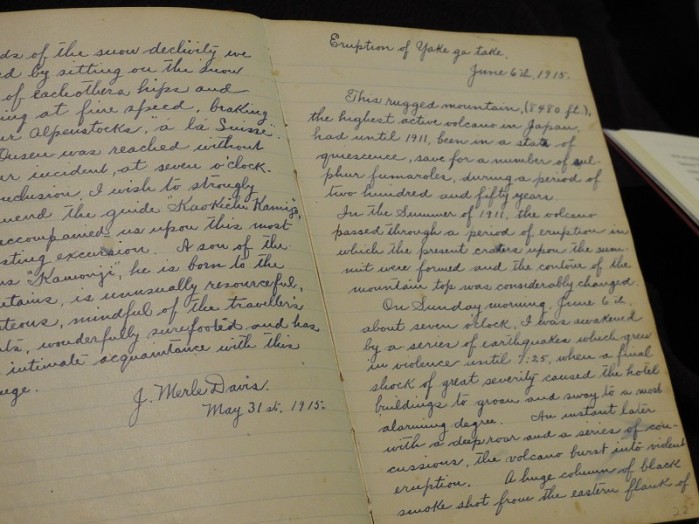 ds of the snow declivity we
ed by sitting on the snow
of each others hips and
ing at fine speed, braking
ur Alpenstocks, "a la Suisse".
Onsen was reached without
ur incident, at seven o'clock.
nclusion, I wish to strongly
mend the guide "Kaokichi Kamijo,
accompanied us upon this most
sting excursion. A son of the
us "Kamonji", he is born to the
ntains, is unusually resourceful,
teous, mindful of the traveller's
ts, wonderfully surefooted and has
intimate acquaintance with this
nge.
J. Merle Davis.
May 31st. 1915.
Eruption of Yake ga take.
June 6th, 1915.
This rugged mountain, (8480 ft.),
the highest active volcano in Japan,
had until 1911, been in a state of
quiescence, save for a number of sul-
phur fumaroles, during a period of
two hundred and fifty years.
In the Summer of 1911, the volcano
passed through a period of eruption in
which the present craters upon the sum-
mit were formed and the contour of the
mountain top was considerably changed.
On Sunday morning, June 6th,
about seven o'clock, I was awakened
by a series of earthquakes which grew
in violence until 7:25, when a final
shock of great severity caused the hotel
buildings to groan and sway to a most
alarming degree. An instant later
with a deep roar and a series of con-
cussions, the volcano burst into violent
eruption. A huge column of black
smoke shot from the eastern flank of
22